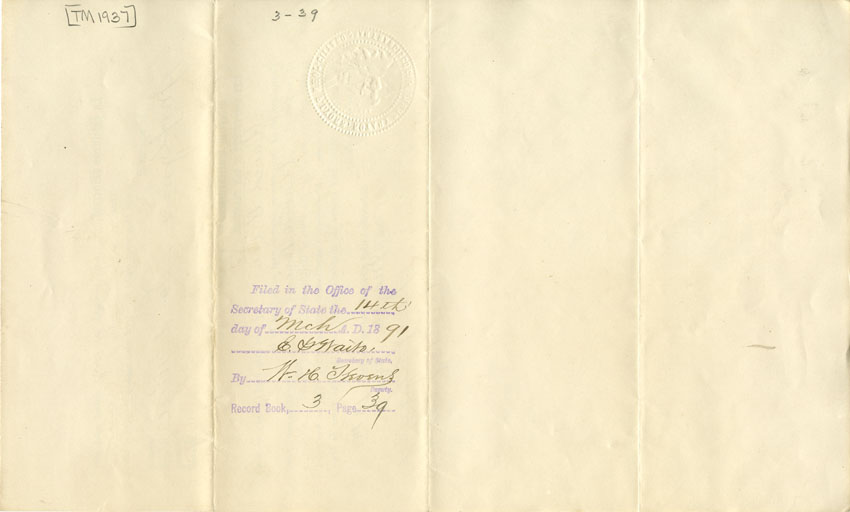 [TM1937]
3-39
Filed in the Office of the
Secretary of State the 14th
day of Mch A. D. 1891
E. G. Waite.
Secretary of State,
By W. H.
Deputy.
Record Book, 3, Page 39